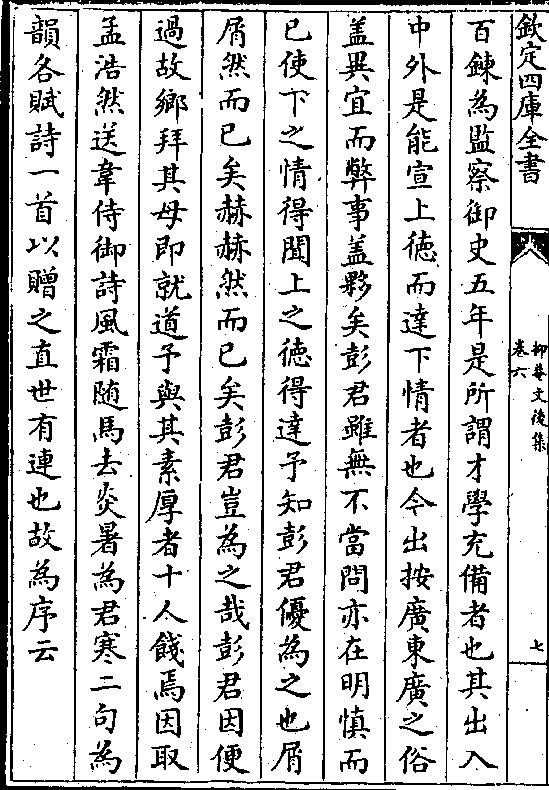 欽定四庫全書
抑菴文後集
卷六
七
百鍊為監察御史五年是所謂才學充備者也其出入
中外是能宣上徳而達下情者也今出按廣東廣之俗
盖異宜而弊事盖夥矣彭君雖無不當問亦在明慎而
已使下之情得聞上之徳得達予知彭君優為之也屑
屑然而已矣赫赫然而已矣彭君豈為之哉彭君因便
過故鄉拜其母即就道予與其素厚者十人餞焉因取
孟浩然送韋侍御詩風霜随馬去炎暑為君寒二句為
韻各賦詩一首以贈之直世有連也故為序云